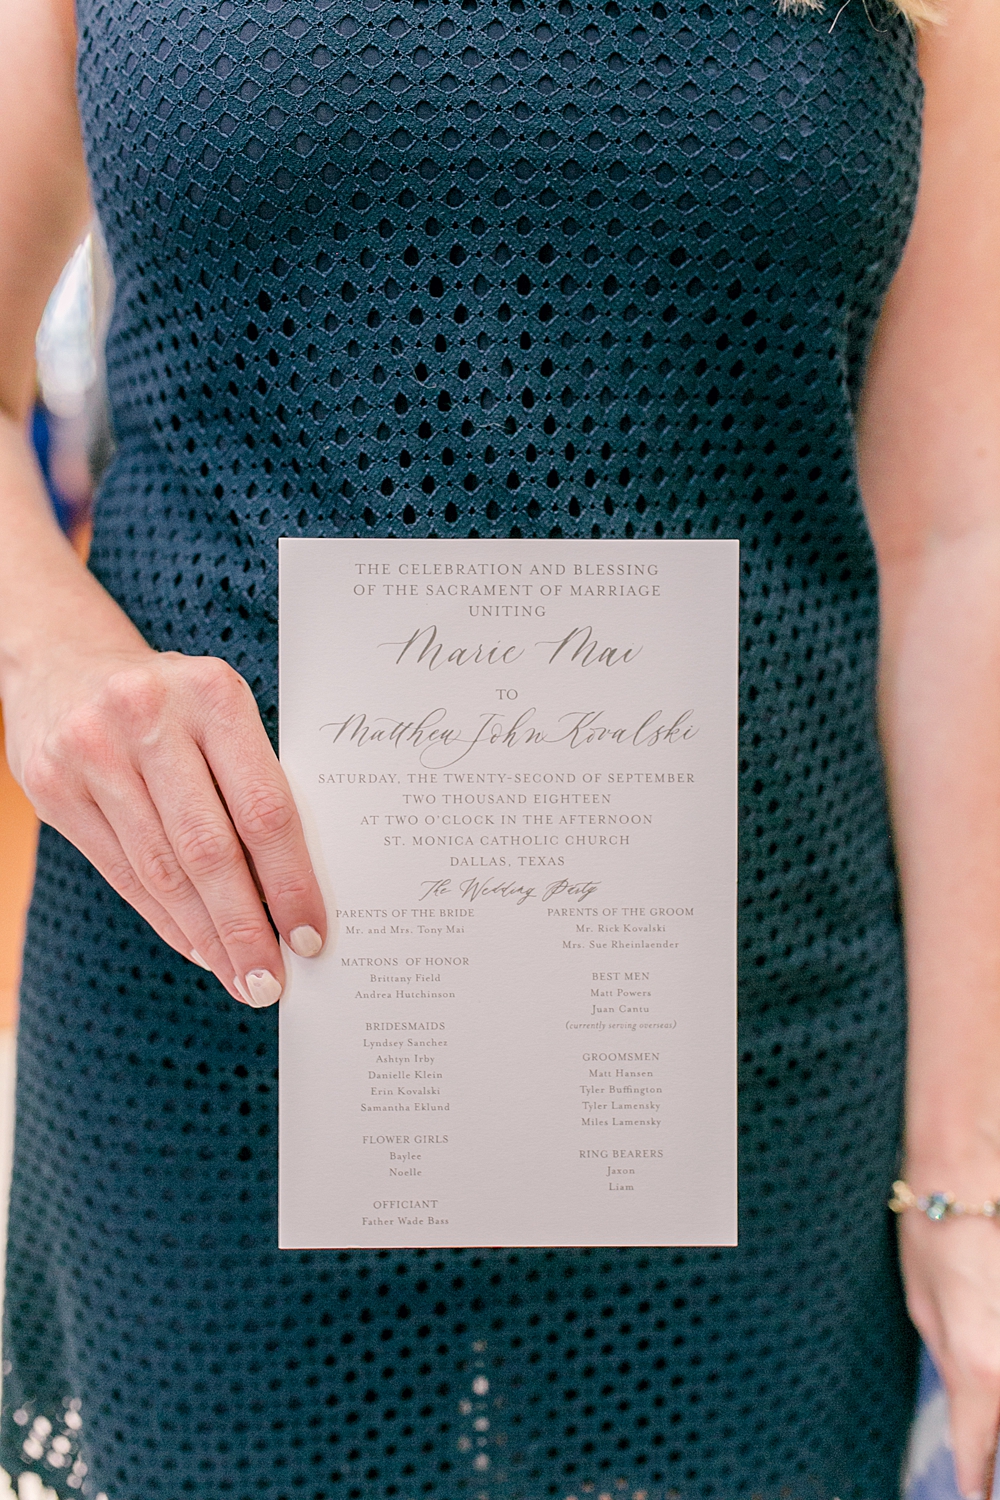 THE CELEBRATION AND BLESSING
OF THE SACRAMENT OF MARRIAGE
UNITING
Marie Mai
TO
Matthew John Kovalski
SATURDAY, THE TWENTY-SECOND OF SEPTEMBER
TWO THOUSAND EIGHTEEN
AT TWO O'CLOCK IN THE AFTERNOON
ST. MONICA CATHOLIC CHURCH
DALLAS, TEXAS
The Wedding Party
PARENTS OF THE BRIDE
Mr. and Mrs. Tony Mai
MATRONS OF HONOR
Brittany Field
Andrea Hutchinson
BRIDESMAIDS
Lyndsey Sanchez
Ashtyn Irby
Danielle Klein
Erin Kovalski
Samantha Eklund
FLOWER GIRLS
Baylee
Noelle
OFFICIANT
Father Wade Bass
PARENTS OF THE GROOM
Mr. Rick Kovalski
Mrs. Sue Rheinlaender
BEST MEN
Matt Powers
Juan Cantu
(currently serving overseas)
GROOMSMEN
Matt Hansen
Tyler Buffington
Tyler Lamensky
Miles Lamensky
RING BEARERS
Jaxon
Liam